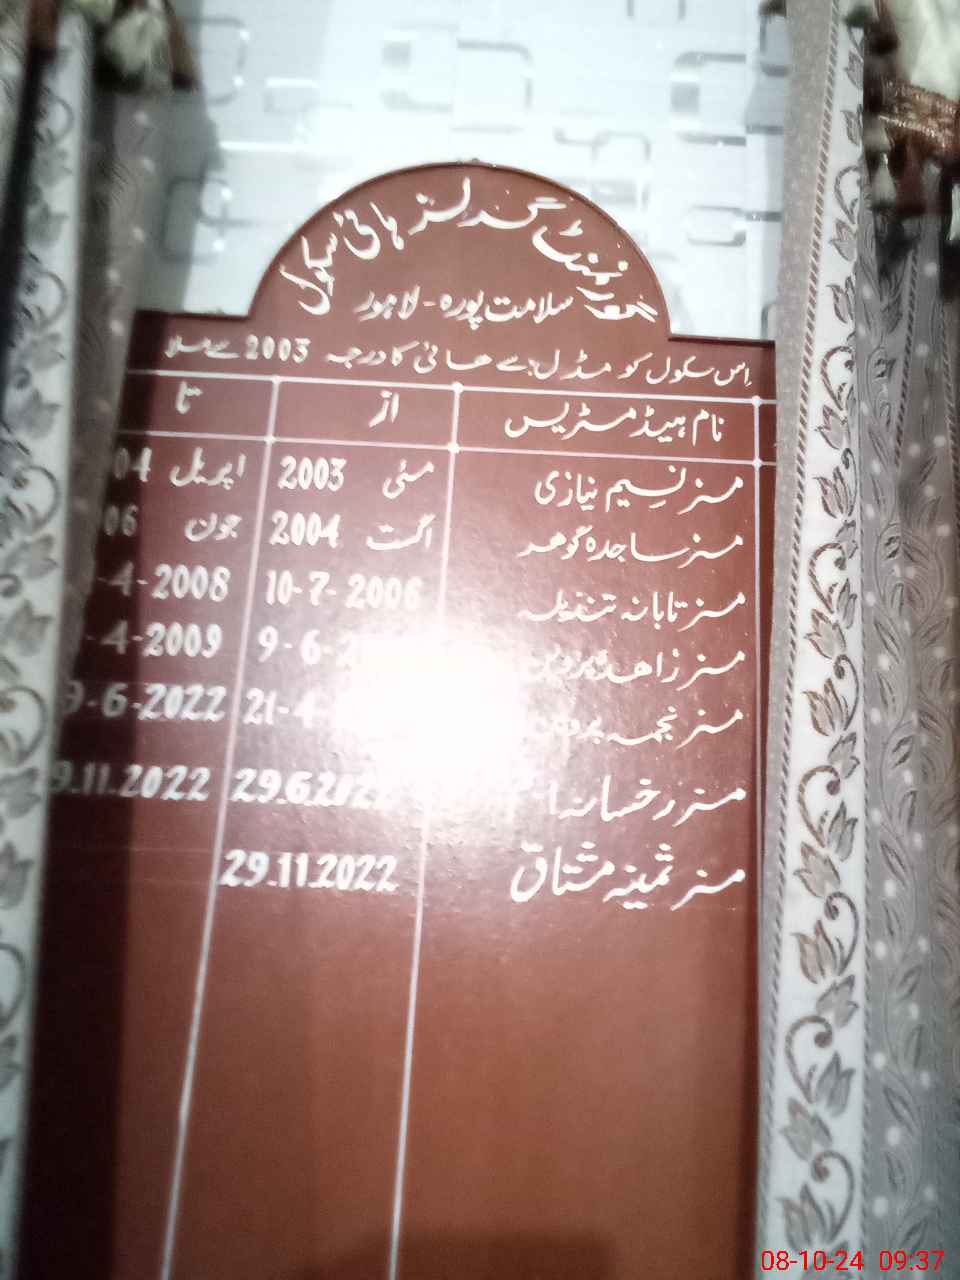 گورنمنٹ گرلز ہائی سکول
سلامت پورہ - لاہور
اِس سکول کو مڈل سے ھائی کا درجہ 2003 سے ملا
نام ہیڈ مسٹریس از تا
مسز نسیم نیازی مئی 2003 اپریل 04
مسز ساجدہ گوھر اگست 2004 جون 06
مسز تابانہ 10-7-2006 4-2008
مسز زاھدہ پروین 9-6- 4-2009
مسز نجمہ 21-4- 9-6-2022
مسز رخسانہ 29.6.2022 9.11.2022
مسز ثمینہ مشتاق 29.11.2022
08-10-24 09:37